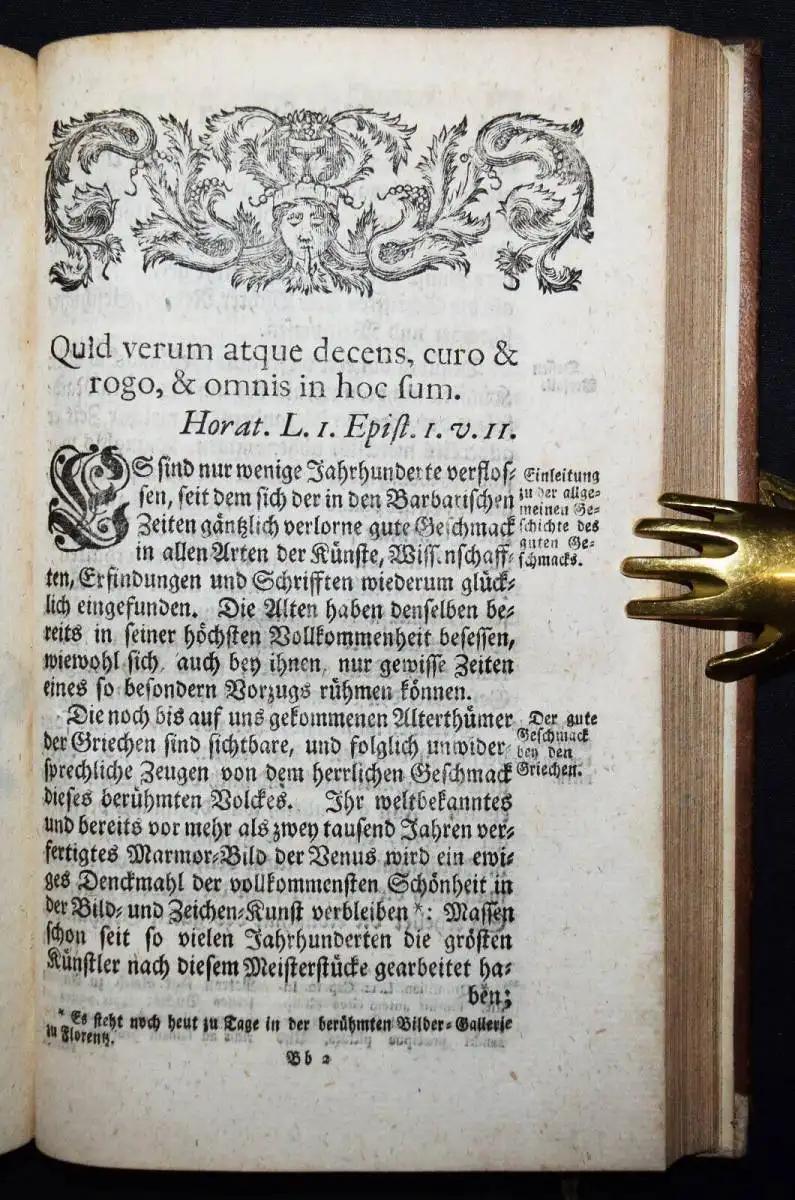 Quid verum atque decens, curo &
rogo, & omnis in hoc ſum.
Horat. L. 1. Epiſt. 1. v. 11.
ES ſind nur wenige Jahrhunderte verfloſ-
ſen, ſeit dem ſich der in den Barbariſchen
Zeiten gäntzlich verlorne gute Geſchmack
in allen Arten der Künſte, Wiſſenſchaff-
ten, Erfindungen und Schrifften wiederum glück-
lich eingefunden. Die Alten haben denſelben be-
reits in ſeiner höchſten Vollkommenheit beſeſſen,
wiewohl ſich auch bey ihnen nur gewiſſe Zeiten
eines ſo beſondern Vorzugs rühmen können.
Einleitung
zu der allge-
meinen Ge-
ſchichte des
guten Ge-
ſchmacks.
Die noch bis auf uns gekommenen Alterthümer
der Griechen ſind ſichtbare, und folglich unwider-
ſprechliche Zeugen von dem herrlichen Geſchmack
dieſes berühmten Volckes. Ihr weltbekanntes
und bereits vor mehr als zwey tauſend Jahren ver-
fertigtes Marmor-Bild der Venus wird ein ewi-
ges Denckmahl der vollkommenſten Schönheit in
der Bild- und Zeichen-Kunſt verbleiben *: Maſſen
ſchon ſeit ſo vielen Jahrhunderten die gröſten
Künſtler nach dieſem Meiſterſtücke gearbeitet ha-
ben;
Der gute
Geſchmack
bey den
Griechen.
* Es ſteht noch heut zu Tage in der berühmten Bilder-Gallerie
zu Florentz.
Bb 2